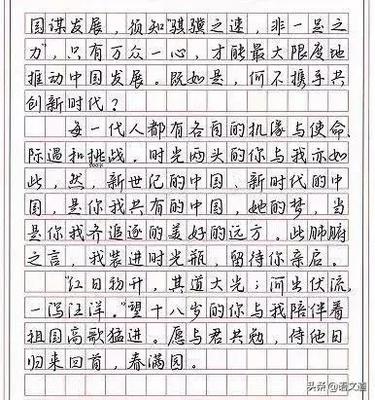 国谋发展，须知“骐骥之速，非一足之
力”，只有万众一心，才能最大限度地
推动中国发展。既如是，何不携手共
创新时代？
每一代人都有各自的机缘与使命、
际遇和挑战，时光两头的你与我亦如
此，然，新世纪的中国、新时代的中
国，是你我共有的中国，她的梦，当
是你我齐追逐的美好的远方。此肺腑
之言，我装进时光瓶，留待你亲启。
“红日初升，其道大光；河出伏流，
一泻汪洋。”望十八岁的你与我陪伴着
祖国高歌猛进。愿与君共勉，待他日
归来回首，春满园。
头条@语文道